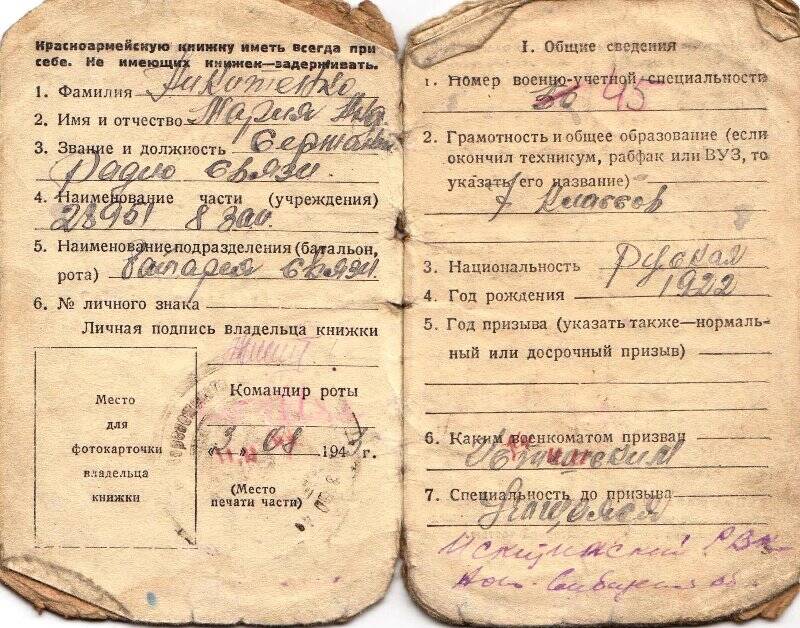 Красноармейскую книжку иметь всегда при
себе. Не имеющих книжек—задерживать.
1. Фамилия Никитенко
2. Имя и отчество Мария
3. Звание и должность Сержант
Радио связи
4. Наименование части (учреждения)
28951 8 зап.
5. Наименование подразделения (батальон,
рота) батарея связи
6. № личного знака
Личная подпись владельца книжки
Место
для
фотокарточки
владельца
книжки
Командир роты
„3„ 08 1943 г.
(Место
печати части)
I. Общие сведения
1. Номер военно-учетной специальности
45
2. Грамотность и общее образование (если
окончил техникум, рабфак или ВУЗ, то
указать его название)
7 классов
3. Национальность русская
4. Год рождения 1922
5. Год призыва (указать также—нормаль-
ный или досрочный призыв)
6. Каким военкоматом призван
7. Специальность до призыва
Учащаяся
Искитимский РВК